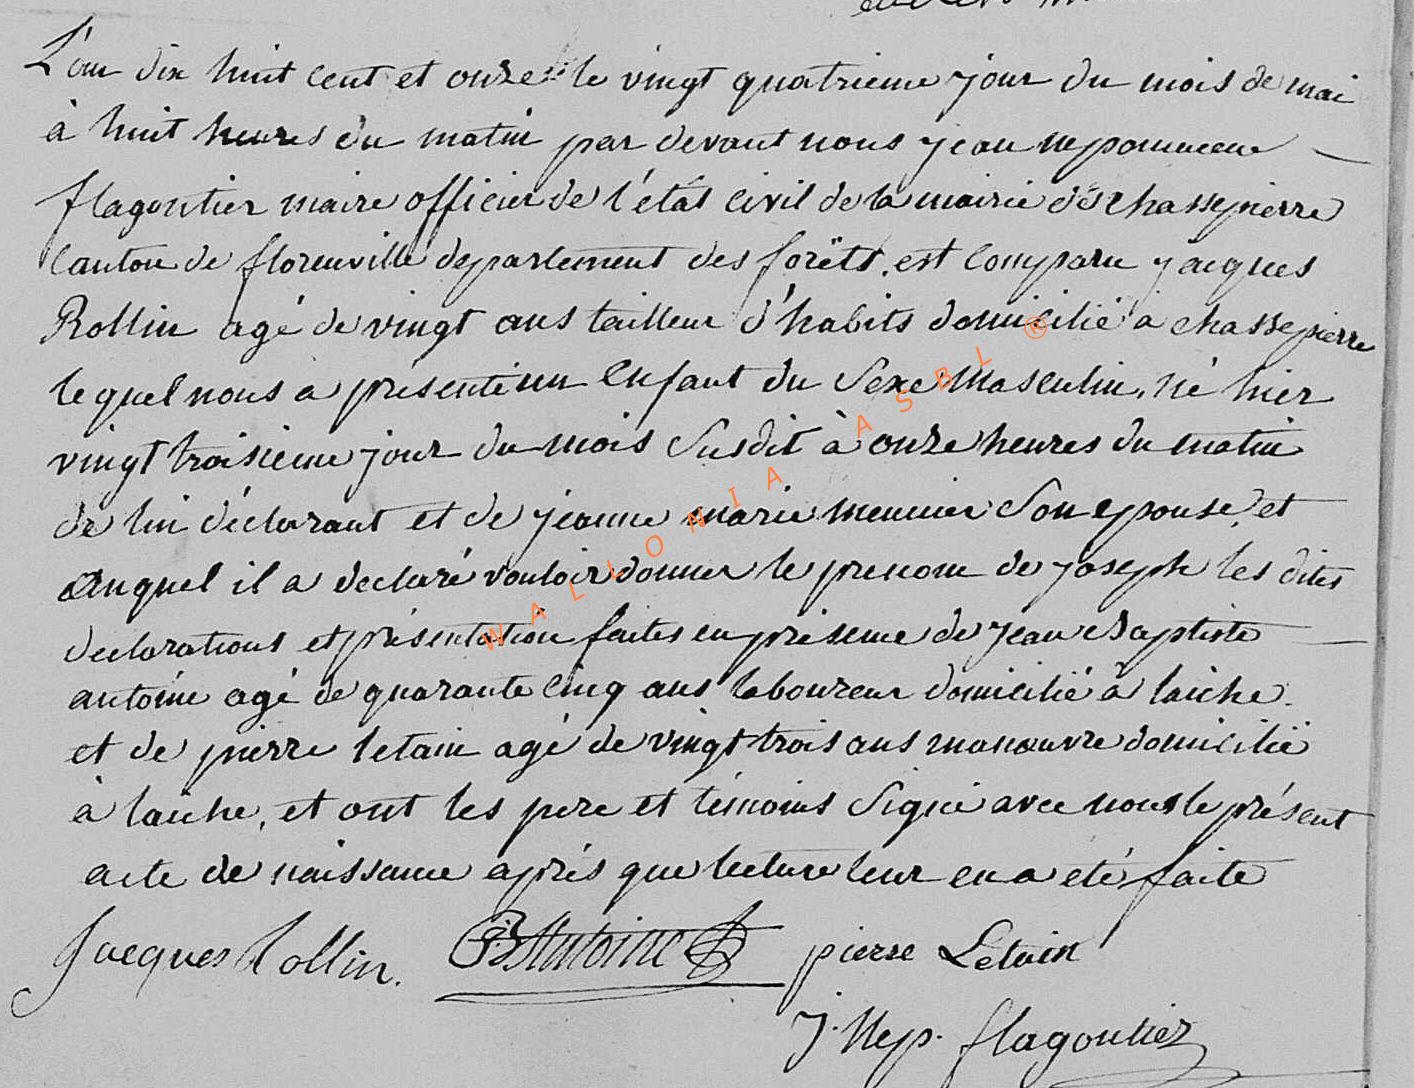 L'an dix huit cent et onze le vingt quatrieme jour du mois de mai
à huit heures du matin par devant nous jean nepomucene
flagontier maire officier de l'état civil de la mairie de chassepierre
canton de florenville departement des forêts, est comparu jacques
Rollin agé de vingt ans tailleur d'habits domicilié à chassepierre
lequel nous a présenté un Enfant du Sexe Masculin, né hier
vingt troisieme jour du mois Susdit à onze heures du matin
de lui déclarant et de jeanne marie meunier Son epouse, et
auquel il a declaré vouloir donner le prenom de joseph les dites
declarations et présentation faites en présence de jean Baptiste
antoine agé de quarante cinq ans laboureur domicilié à laiche
et de pierre letain agé de vingt trois ans manœuvre domicilié
à laiche, et ont les pere et témoins Signé avec nous le présent
acte de naissance après que lecture leur en a été faite
Jacques Rollin. JBAntoine pierre Letain
J. Nep. flagontier
WALLONIA ASBL ®